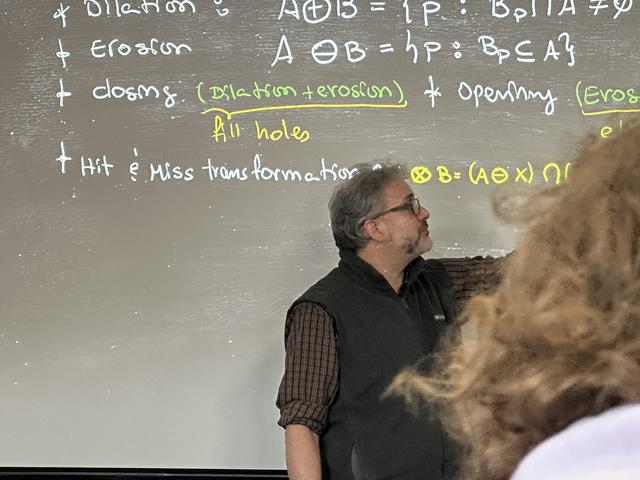 * Dilation : A⊕B = {p : Bp∩A ≠ ∅
* Erosion A ⊖ B = {p : Bp ⊆ A}
* closing (Dilation + erosion) * Opening (Eros
fill holes
* Hit & Miss transformation ⊗ B = (A ⊖ X) ∩ (